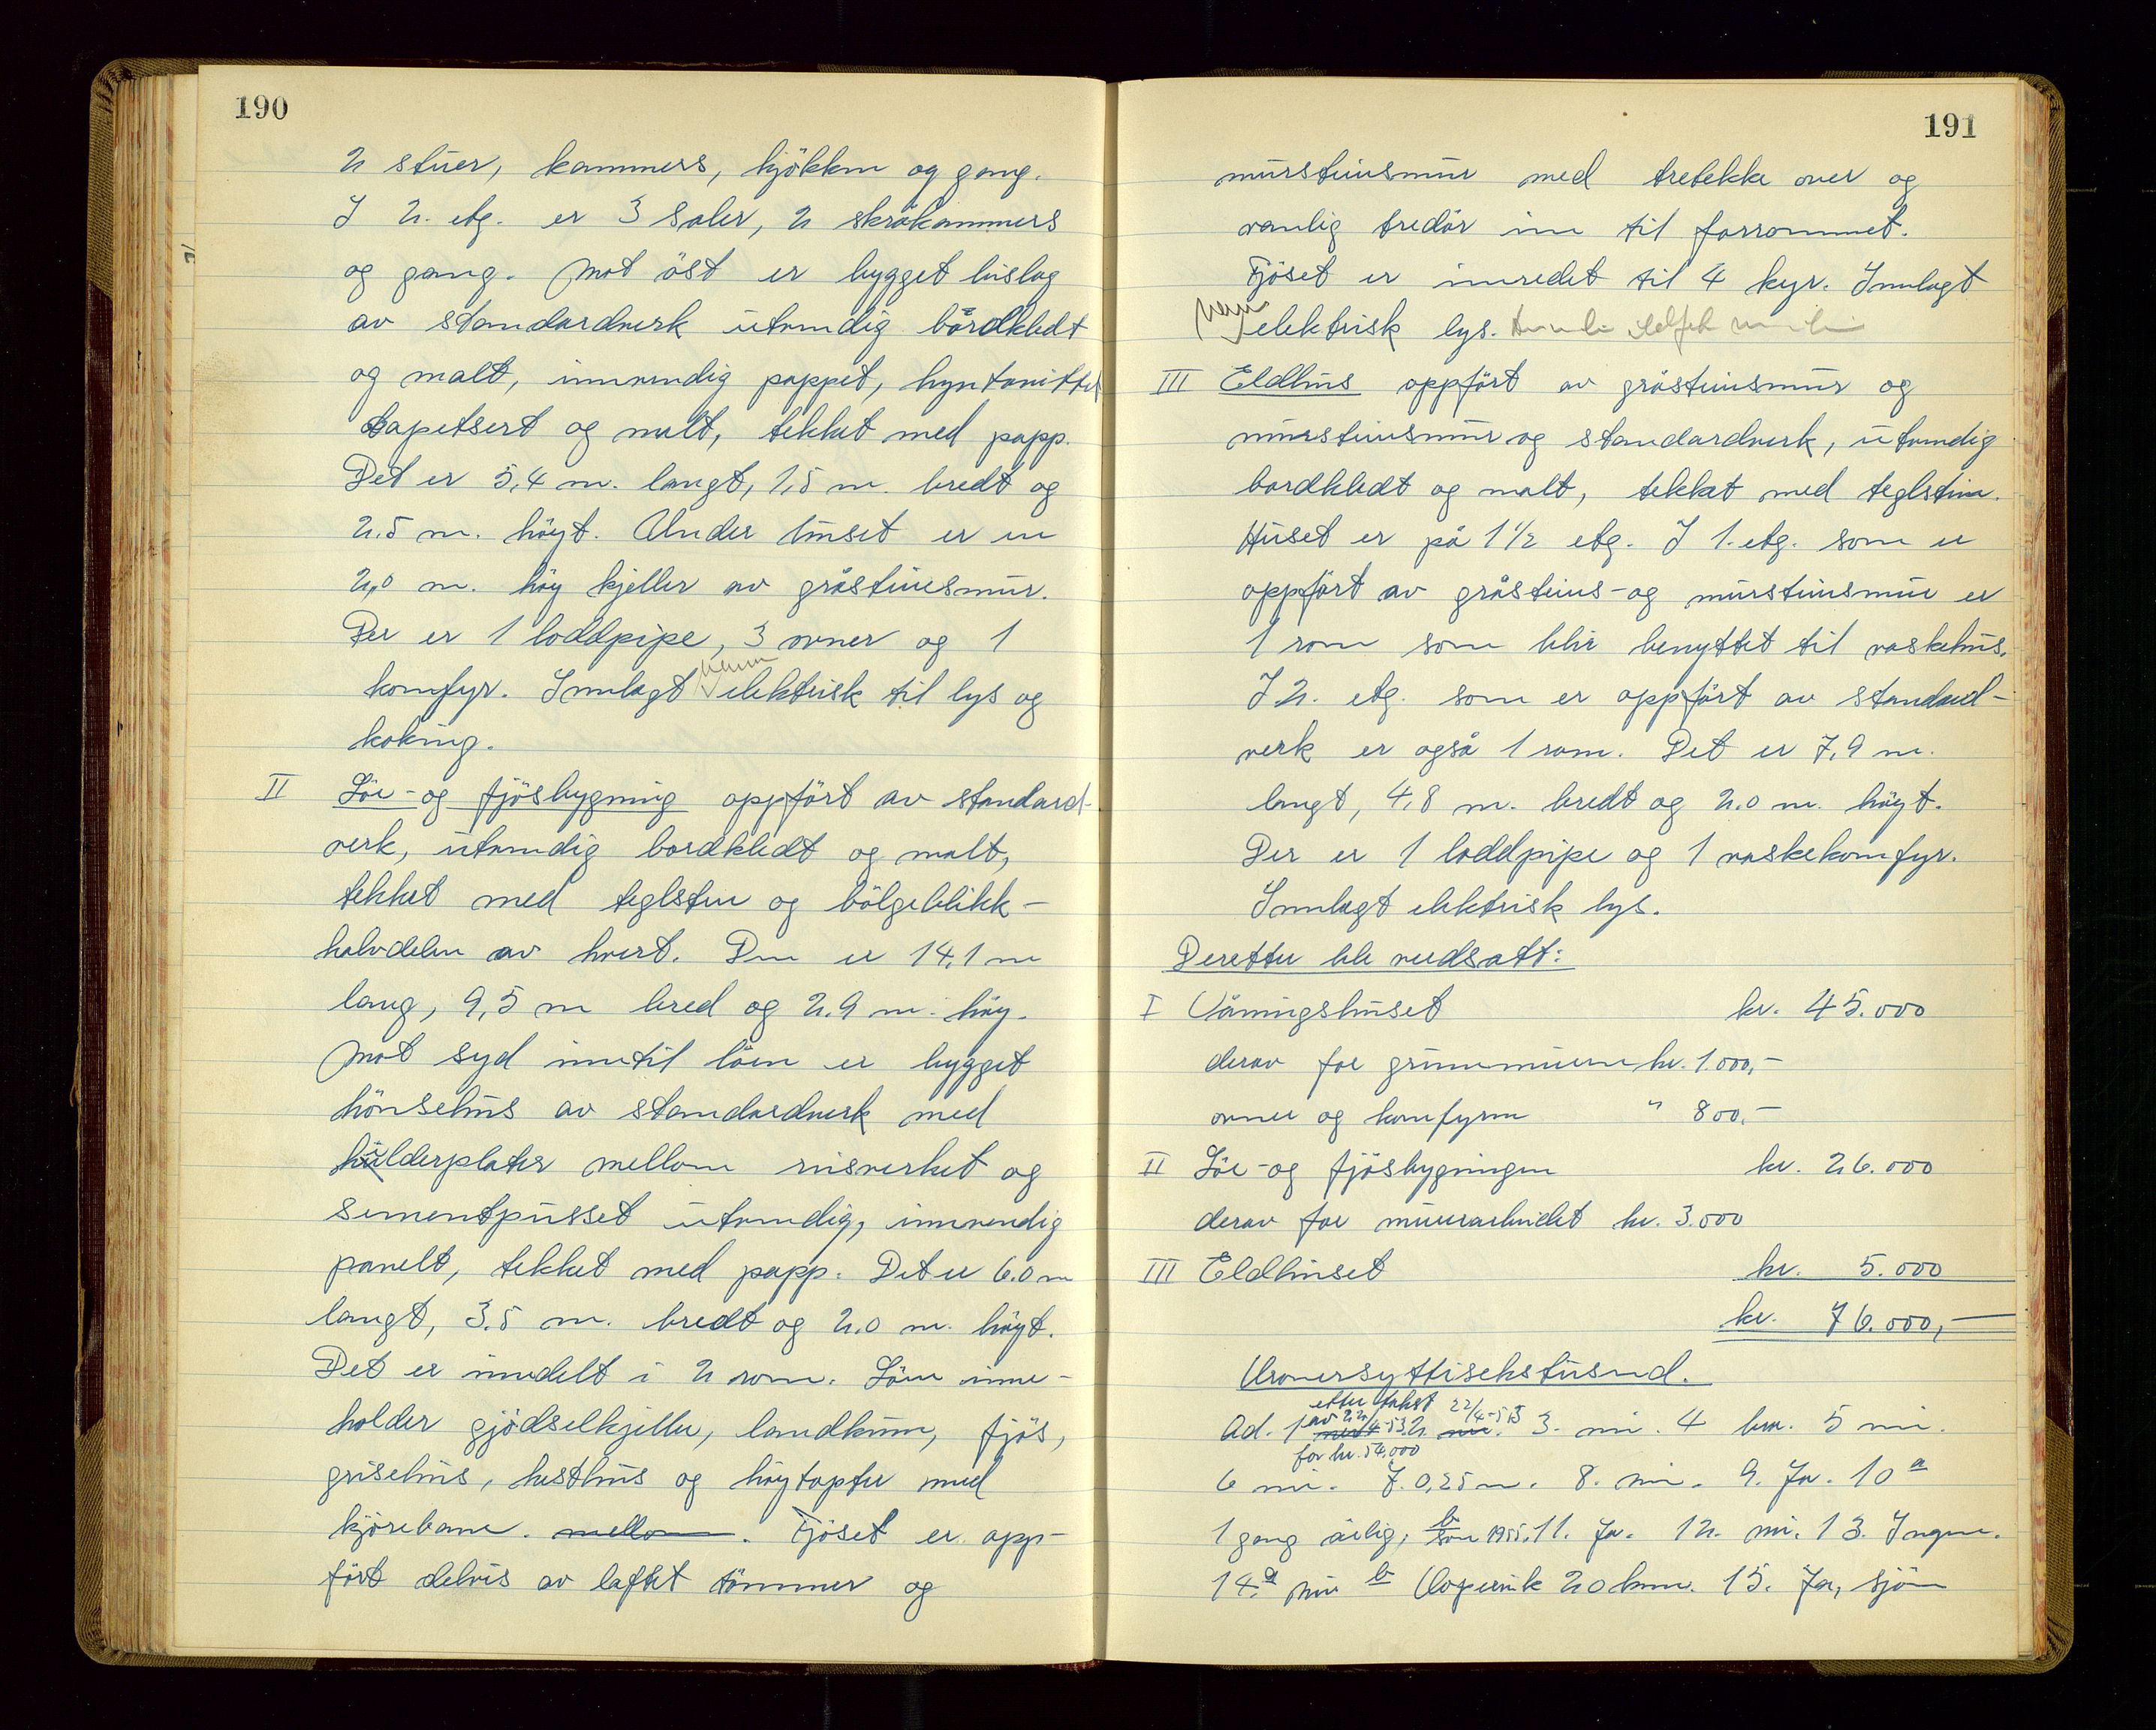 190
2 stuer, kammers, kjökken og gang.
I 2. etg. er 3 saler, 2 skråkammers
og gang. Mot öst er bygget bislag
av standardverk utvendig bordkledt
og malt, innvendig pappet, huntonittet
tapetsert og malt, tekket med papp.
Det er 5,4 m. langt, 1,5 m. bredt og
2.5 m. höyt. Under huset er en
2,0 m. höy kjeller av gråsteinsmur.
Der er 1 loddpipe, 3 ovner og 1
komfyr. Innlagt elektrisk til lys og
koking.
II Löe- og fjösbygning oppfört av standard-
verk, utvendig bordkledt og malt,
tekket med teglsten og bölgeblikk -
halvdelen av hvert. Den er 14,1 m
lang, 9,5 m bred og 2.9 m. höy.
Mot syd inntil löen er bygget
hönsehus av standardverk med
hulderplater mellom reisverket og
sementpusset utvendig, innvendig
panelt, tekket med papp. Det er 6.0 m
langt, 3.5 m. bredt og 2.0 m. höyt.
Det er inndelt i 2 rom. Löen inne-
holder gjödselkjeller, landkum, fjös,
grisehus, hesthus og höytopter med
kjörebane. mellom. Fjöset er opp-
fört delvis av laftet tömmer og
191
mursteinsmur med tretekke over og
vanlig tredör inn til forrommet.
Fjöset er innredet til 4 kyr. Innlagt
elektrisk lys.
III Eldhus oppfört av gråsteinsmur og
mursteinsmur og standardverk, utvendig
bordkledt og malt, tekket med teglstein.
Huset er på 1 1/2 etg. I 1. etg. som er
oppfört av gråsteins- og mursteinsmur er
1 rom som blir benyttet til vaskehus.
I 2. etg. som er oppfört av standard-
verk er også 1 rom. Det er 7,9 m.
langt, 4,8 m. bredt og 2.0 m. höyt.
Der er 1 loddpipe og 1 vaskekomfyr.
Innlagt elektrisk lys.
Deretter ble verdsatt:
I Våningshuset kr. 45.000
derav for grunnmuren kr. 1.000,-
ovner og komfyren " 800.-
II Löe- og fjösbygningen kr. 26.000
derav for murarbeidet kr. 3.000
III Eldhuset kr. 5.000
kr. 76.000,-
Kronersyttisekstusend.
etter takst 22/4-53
Ad. 1 av 22/4-53 2. nei. 3. nei. 4 km. 5 nei.
for kr. 54.000
6 nei. 7. 0,25 m. 8. nei. 9. Ja. 10 a
1 gang årlig, b 1955. 11. Ja. 12. nei. 13. Ingen.
14. a nei b Kopervik 20 km. 15. Ja, sjöen